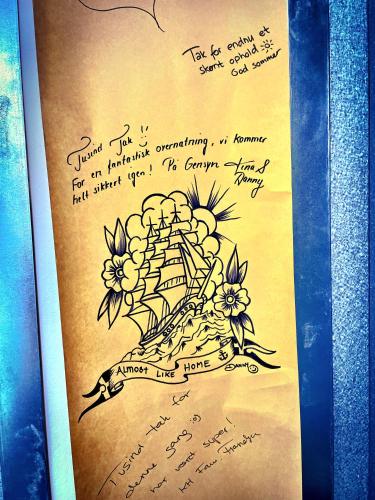 Tak for endnu et
skønt ophold
God sommer
Tusind Tak !!
For en fantastisk overnatning, vi kommer
helt sikkert igen! På Gensyn Tina &
Danny
ALMOST LIKE HOME
DANNY
Tusind tak for
denne gang :o)
har været super!
KH Fam.